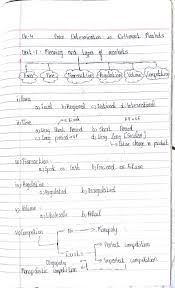 Ch-4 Price Determination in Different Markets
Unit-1: Meaning and types of markets
Area Time Transaction Regulation Volume Competition
i) Area
a) Local b) Regional c) National d) International
ii) Time
a) Very Short Period b) Short Period
c) Long period d) Very Long (Secular)
iii) Transaction
a) Spot or Cash b) Forward or Future
iv) Regulation
a) Regulated b) Unregulated
v) Volume
a) Wholesale b) Retail
vi) Competition
Monopoly
Perfect competition
Oligopoly
Monopolistic competition Imperfect competition